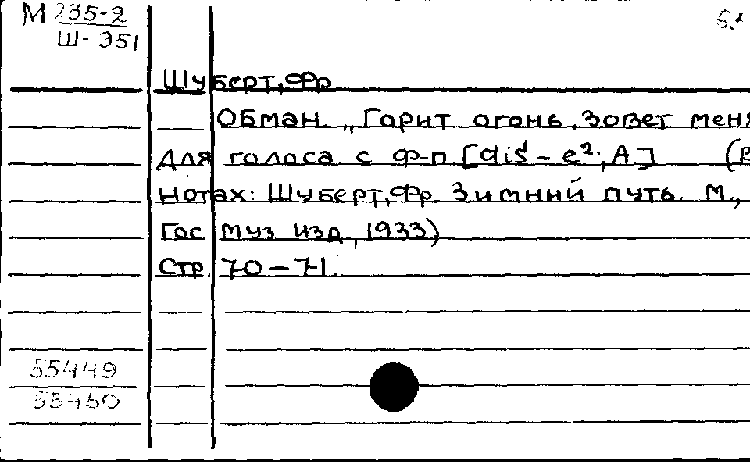 М 235-2
Ш-351
Шуберт, Фр.
Обман. „Горит огонь, зовет меня
Для голоса с ф-п [dis¹ - e²; A] (В
Нотах: Шуберт, Фр. Зимний путь. М.,
Гос муз изд, 1933)
Стр. 70-71.
55449